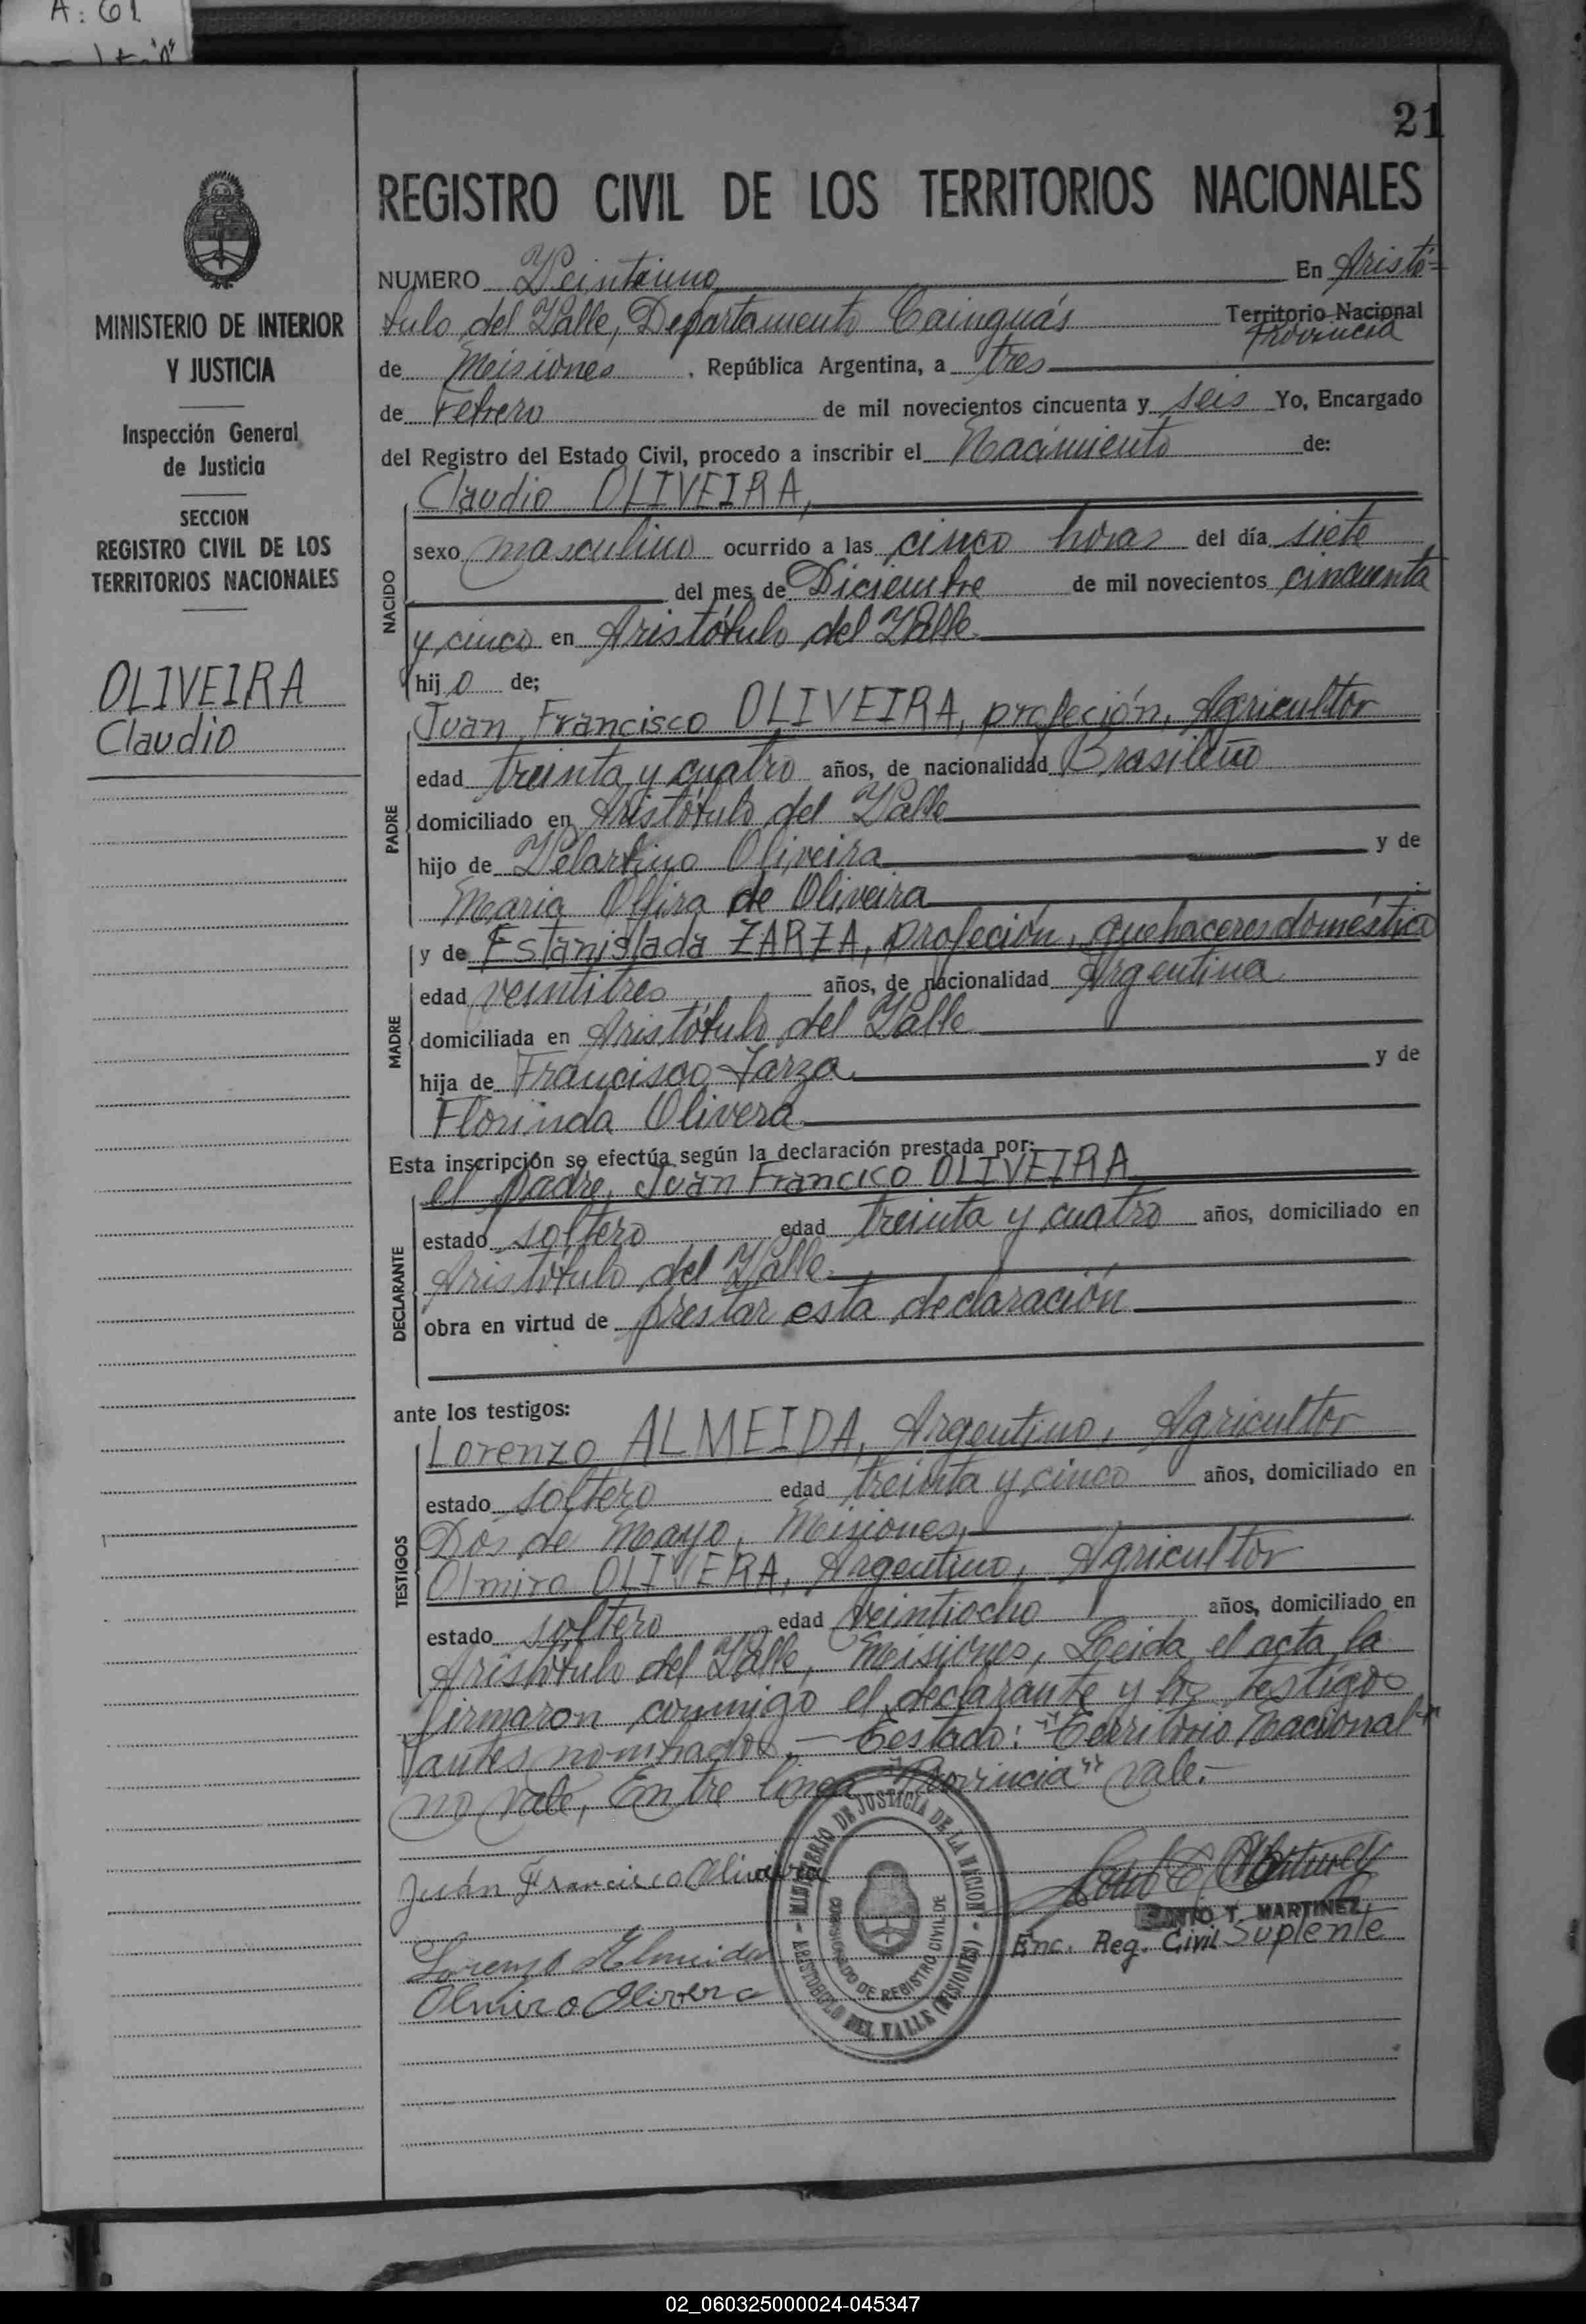 A: 61
21
REGISTRO CIVIL DE LOS TERRITORIOS NACIONALES
MINISTERIO DE INTERIOR
Y JUSTICIA
Inspección General
de Justicia
SECCION
REGISTRO CIVIL DE LOS
TERRITORIOS NACIONALES
OLIVEIRA
Claudio
NUMERO Veintiuno En Aristó-
bulo del Valle, Departamento Cainguás Territorio Nacional
Provincia
de Misiones, República Argentina, a tres
de Febrero de mil novecientos cincuenta y seis Yo, Encargado
del Registro del Estado Civil, procedo a inscribir el Nacimiento de:
NACIDO
Claudio OLIVEIRA,
sexo masculino ocurrido a las cinco horas del día siete
del mes de Diciembre de mil novecientos cincuenta
y cinco en Aristóbulo del Valle
hijo de;
PADRE
Juan Francisco OLIVEIRA, profeción, Agricultor
edad treinta y cuatro años, de nacionalidad Brasileño
domiciliado en Aristóbulo del Valle
hijo de Oliveira y de
Maria de Oliveira
y de Estanislada ZARZA, profeción, quehaceres doméstico
MADRE
edad veintitres años, de nacionalidad Argentina
domiciliada en Aristóbulo del Valle
hija de Francisco Zarza y de
Florinda Olivera
Esta inscripción se efectúa según la declaración prestada por:
DECLARANTE
el padre, Juan Francico OLIVEIRA
estado soltero edad treinta y cuatro años, domiciliado en
Aristóbulo del Valle
obra en virtud de prestar esta declaración
ante los testigos:
TESTIGOS
Lorenzo ALMEIDA, Argentino, Agricultor
estado soltero edad treinta y cinco años, domiciliado en
Dos de Mayo, Misiones,
Olmiro OLIVERA, Argentino, Agricultor
estado soltero edad veintiocho años, domiciliado en
Aristóbulo del Valle, Misiones, Leida el acta la
firmaron conmigo el declarante y los testigos
antes nombrados.- Testado: "Territorio Nacional"
no vale, Entre linea "Provincia" vale.-
Juán Francisco Oliveira
Lorenzo Almeida
Olmiro Olivera
MINISTERIO DE JUSTICIA DE LA NACION
ARISTOBULO DEL VALLE (MISIONES)
DE REGISTRO CIVIL DE
T. MARTINEZ
Enc. Reg. Civil Suplente
02_060325000024-045347